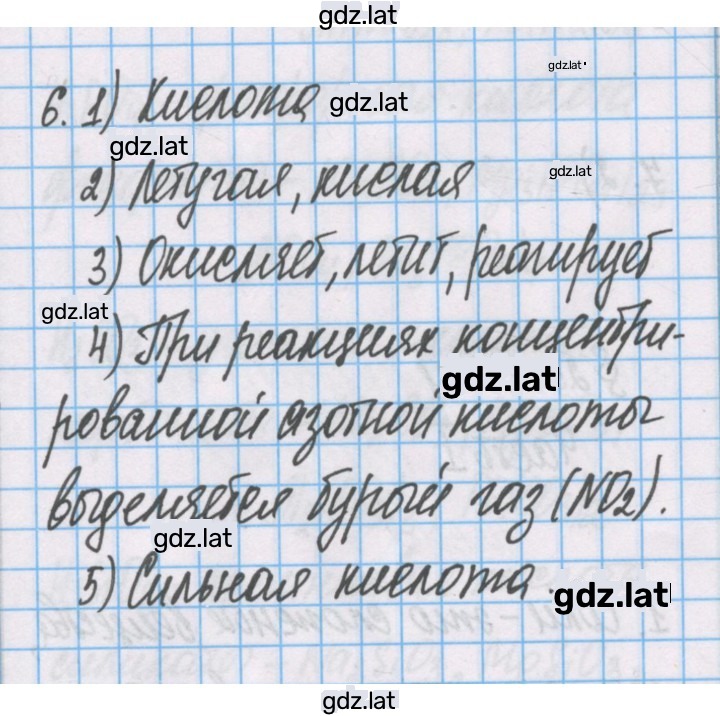 gdz.lat
gdz.lat
6. 1) Кислота gdz.lat
gdz.lat
gdz.lat
2) Летучая, кислая
3) Окисляет, летит, реагирует
gdz.lat
4) При реакциях концентри-
gdz.lat
рованной азотной кислоты
выделяется бурый газ (NO2).
gdz.lat
5) Сильная кислота
gdz.lat
gdz.lat